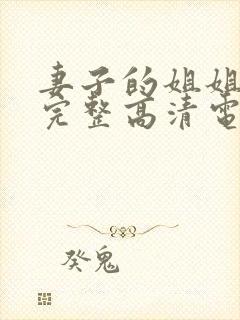 妻子的姐姐
完整高清電
癸鬼